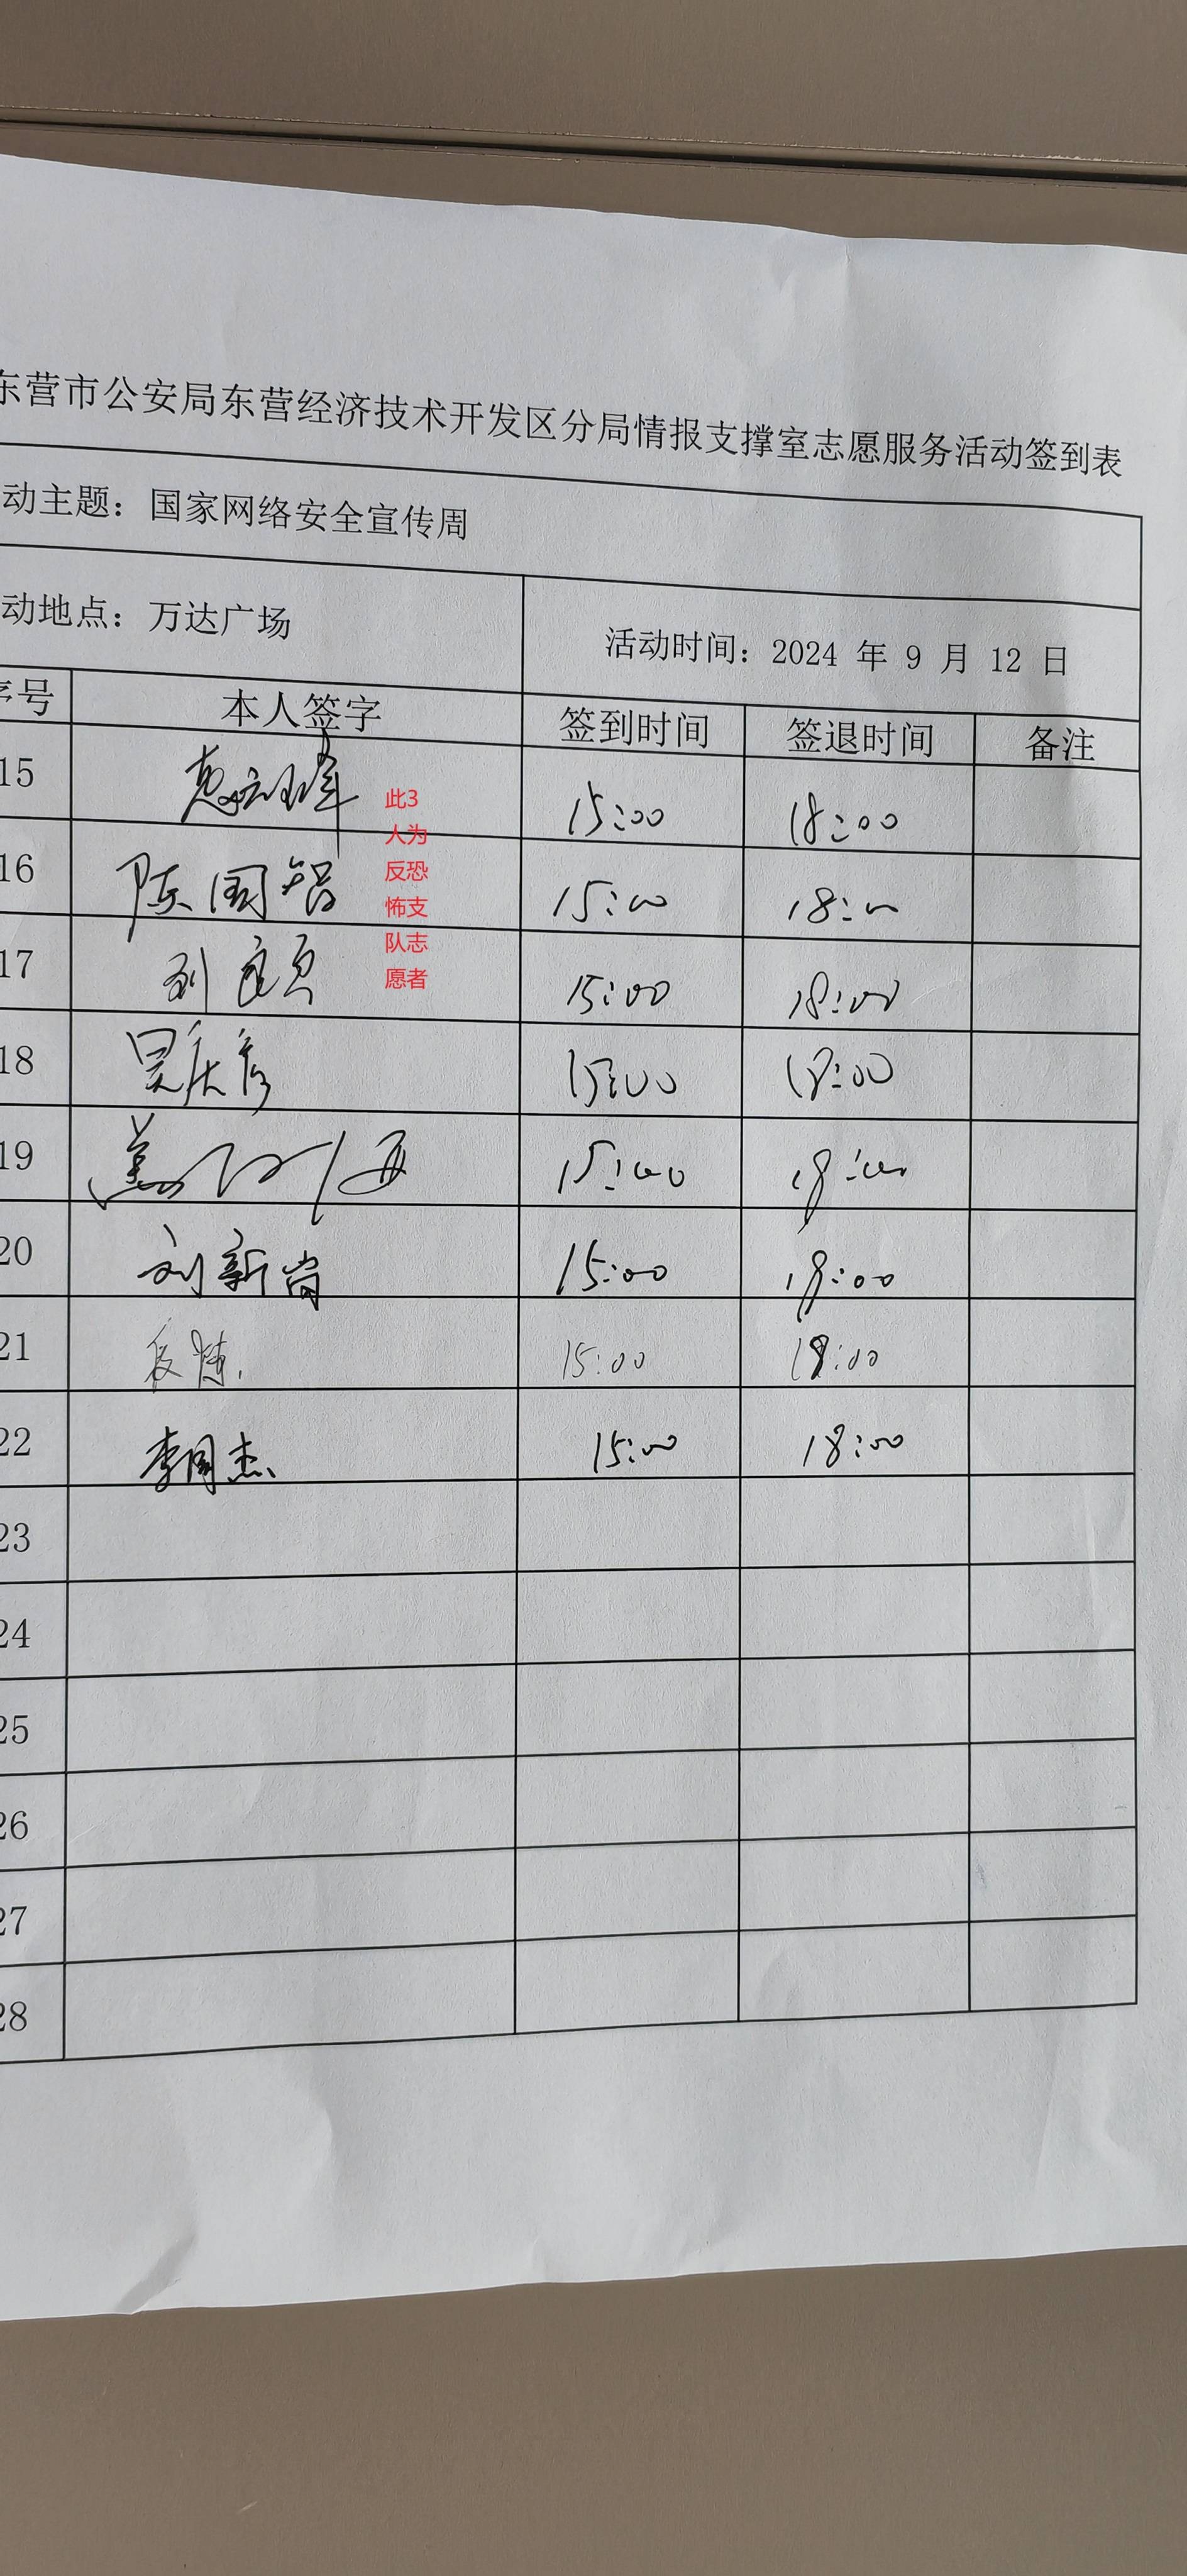 东营市公安局东营经济技术开发区分局情报支撑室志愿服务活动签到表
动主题：国家网络安全宣传周
动地点：万达广场 活动时间：2024 年 9 月 12 日
序号 本人签字 签到时间 签退时间 备注
15 15:00 18:00
此3
人为
反恐
怖支
队志
愿者
16 陈国智 15:00 18:00
17 15:00 18:00
18 15:00 18:00
19 15:00 18:00
20 刘新尚 15:00 18:00
21 15:00 18:00
22 李同杰 15:00 18:00
23
24
25
26
27
28